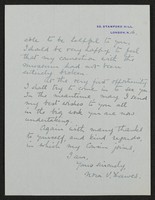 25, STAMFORD HILL,
LONDON, N.16.
able to be helpful to you
I should be very happy to feel
that my connection with the
museum had not been
entirely broken
At the very first opportunity
I shall try to come in to see you
In the meantime may I send
my best wishes to you all
in the big task you are now
undertaking.
Again with many thanks
to yourself and kind regards
in which my Cousin joins,
I am,
Yours sincerely